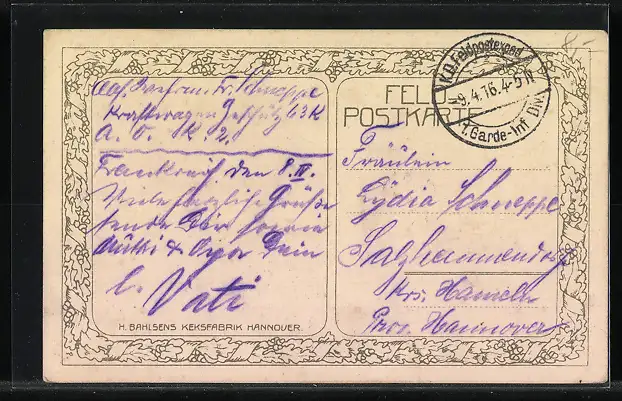 Abs. Dr. Schneppe
Kraftwagen Geschütz 63 K
A. O. K 2.
Frankreich den 8. IV.
Viele herzliche Grüße
sende Dir sowie
Mutti & Opa Dein
l. Vati
H. BAHLSENS KEKSFABRIK HANNOVER
FELD
POSTKARTE
K.D. Feldpostexped.
-9.4.16. 4-5 N
1. Garde-Inf. Div.
Fräulein
Lydia Schneppe
Salzhemmendorf
Krs. Hameln
Prov. Hannover
8,-